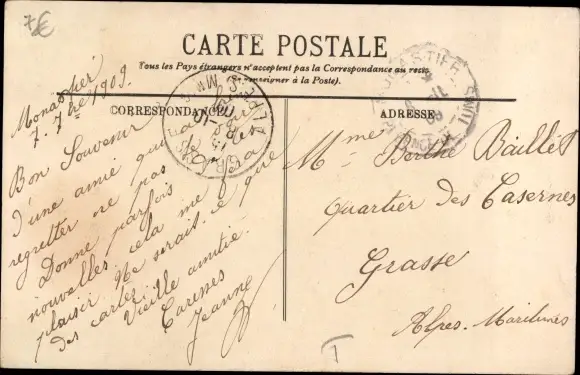 CARTE POSTALE
Tous les Pays étrangers n'acceptent pas la Correspondance au recto
(Se renseigner à la Poste).
CORRESPONDANCE
ADRESSE
Monastier
7. 7bre 1909.
Bon Souvenir
d'une amie qui
regretter ne pas
Donne parfois
nouvelles cela me fera
plaisir. Ne serait-ce que
des cartes. Vieille amitié.
Caresses
Jeanne
Mme Berthe Baillet
Quartier des Casernes
Grasse
Alpes-Maritimes
T